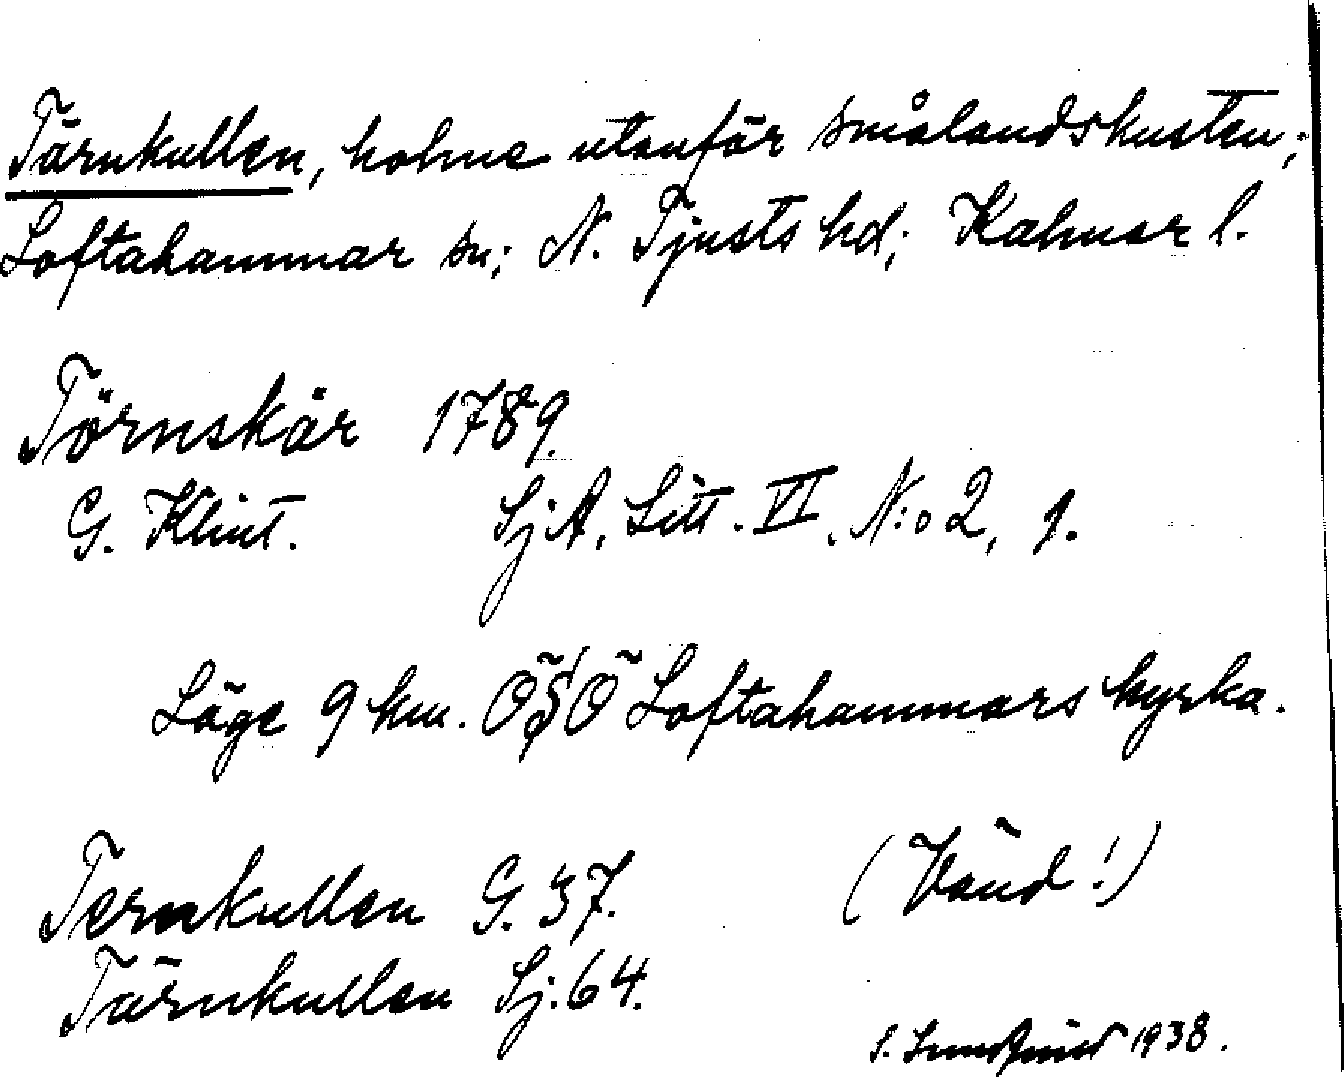 Tärnkullen, holme utanför smålandskusten;
Loftahammar sn; N. Tjusts hd; Kalmar l.
Törnskär 1789.
G. Klint. SjA, Litt. VI, N:o 2, 1.
Läge 9 km. OSO Loftahammars kyrka.
Ternkullen G. 37. (Vänd!)
Tärnkullen Sj. 64.
S. 1938.